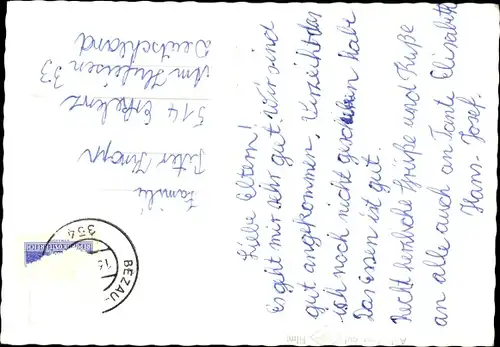 Liebe Eltern!
Es geht mir sehr gut. Wir sind
gut angekommen. Verzeiht das
ich noch nicht geschrieben habe
Das Essen ist gut.
Recht herzliche Grüße und Küße
an alle auch an Tante Elisabeth
Hans-Josef.
Familie
Peter
514 Erkelenz
Am Hufeisen 33
Deutschland
BEZAU
354
REPUBLIK ÖSTERREICH